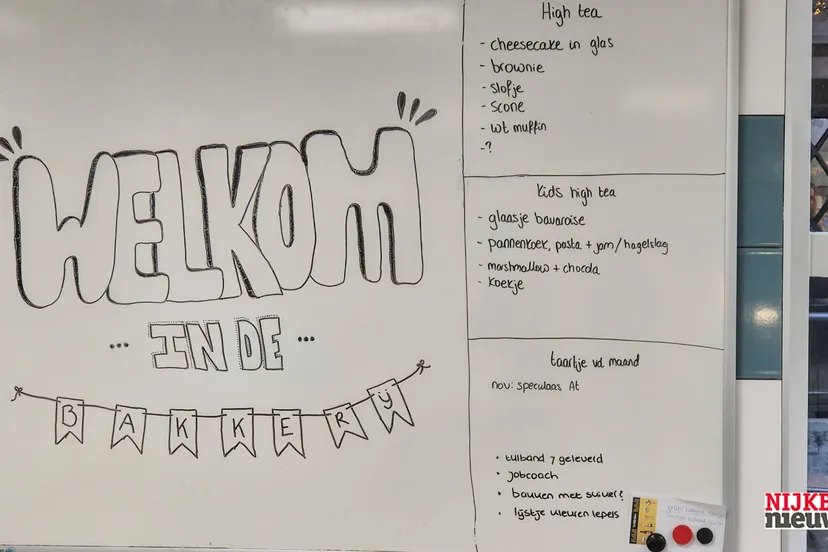 WELKOM
IN DE
BAKKERIJ
High tea
- cheesecake in glas
- brownie
- slofje
- scone
- wt muffin
- ?
Kids high tea
- glaasje bavaroise
- pannenkoek, pasta + jam/hagelslag
- marshmallow + chocola
- koekje
taartje vd maand
nov: speculaas At
• tulband 7 geleverd
• jobcoach
• bakken met suiker?
• lijstje kleuren lepels
NIJKE
nieuw